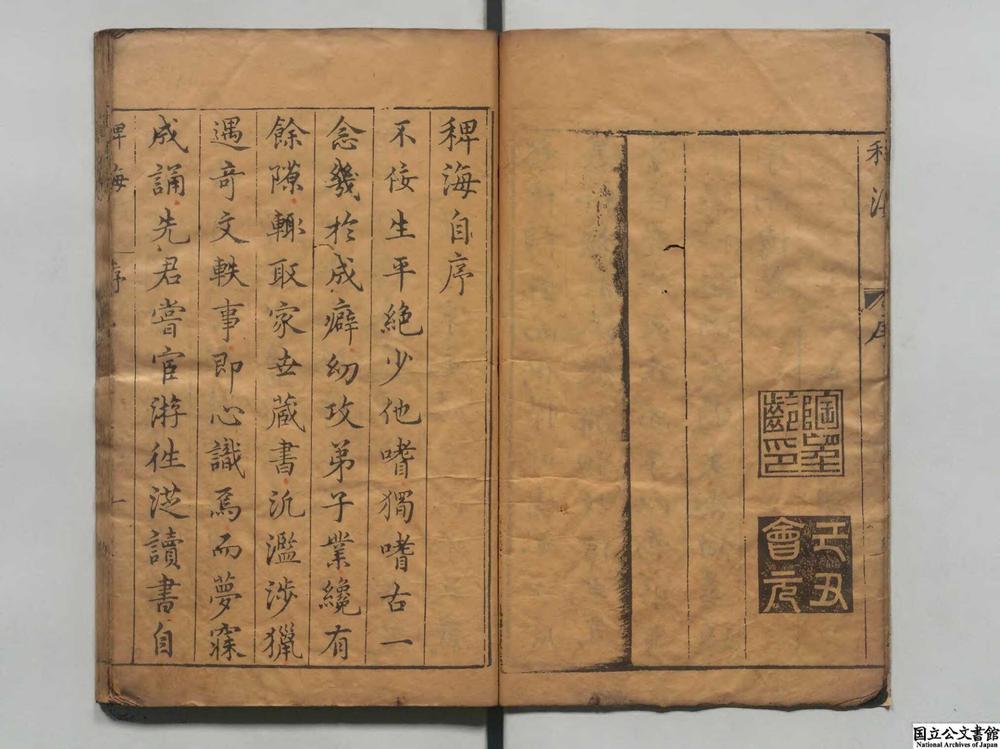 稗海
序
陶望
齡印
己丑
會元
稗海自序
不佞生平絶少他嗜獨嗜古一
念幾於成癖幼攻弟子業纔有
餘隙輒取家世藏書汎濫涉獵
遇竒文軼事即心識焉而夢寐
成誦先君嘗宦游徃從讀書自
稗海
序
一
国立公文書館
National Archives of Japan